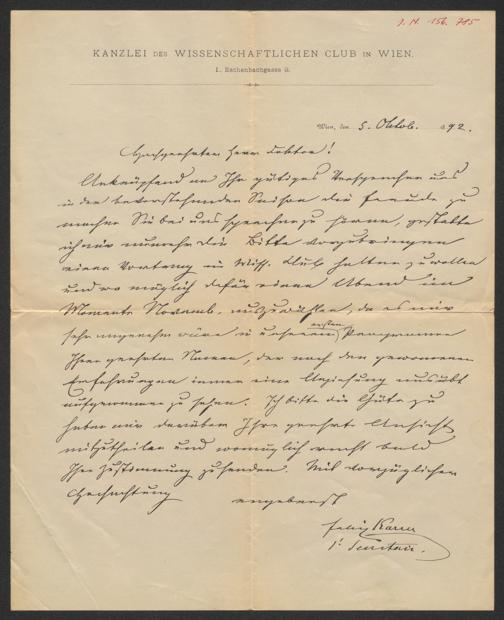 J. N. 156.785
KANZLEI DES WISSENSCHAFTLICHEN CLUB IN WIEN.
I. Eschenbachgasse 9.
Wien, den 5. Oktob. 1892.
Hochgeehrter Herr Doktor!
Anknüpfend an Ihr gütiges Versprechen uns
in der bevorstehenden Saison die Freude zu
machen Sie bei uns sprechen zu hören, gestatte
ich mir nunmehr die Bitte vorzubringen
einen Vortrag im Wiss. Club halten zu wollen
und wo möglich dafür einen Abend im
Monate Novemb. auszuwählen, da es mir
sehr angenehm wäre in unserem ersten Programme
Ihren geehrten Namen, der nach den gewonnenen
Erfahrungen immer eine Anziehung ausübt
aufgenommen zu sehen. Ich bitte die Güte zu
haben mir darüber Ihre geehrte Ansicht
mitzutheilen und womöglich recht bald
Ihre Zustimmung zu senden. Mit vorzüglicher
Hochachtung ergebenst
Felix Karrer
Secretär.